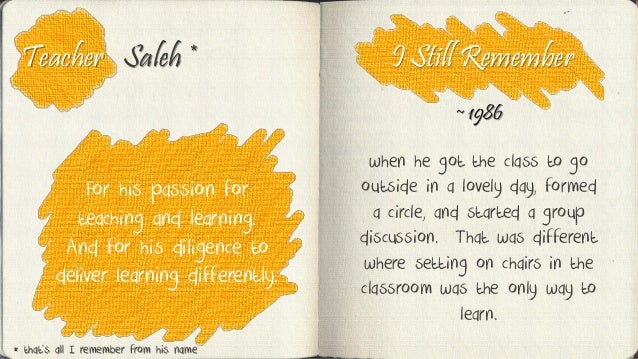 Teacher Saleh *
For his passion for
teaching and learning.
And for his diligence to
deliver learning differently.
* that's all I remember from his name
I Still Remember
~1986
when he got the class to go
outside in a lovely day, formed
a circle, and started a group
discussion. That was different
where setting on chairs in the
classroom was the only way to
learn.